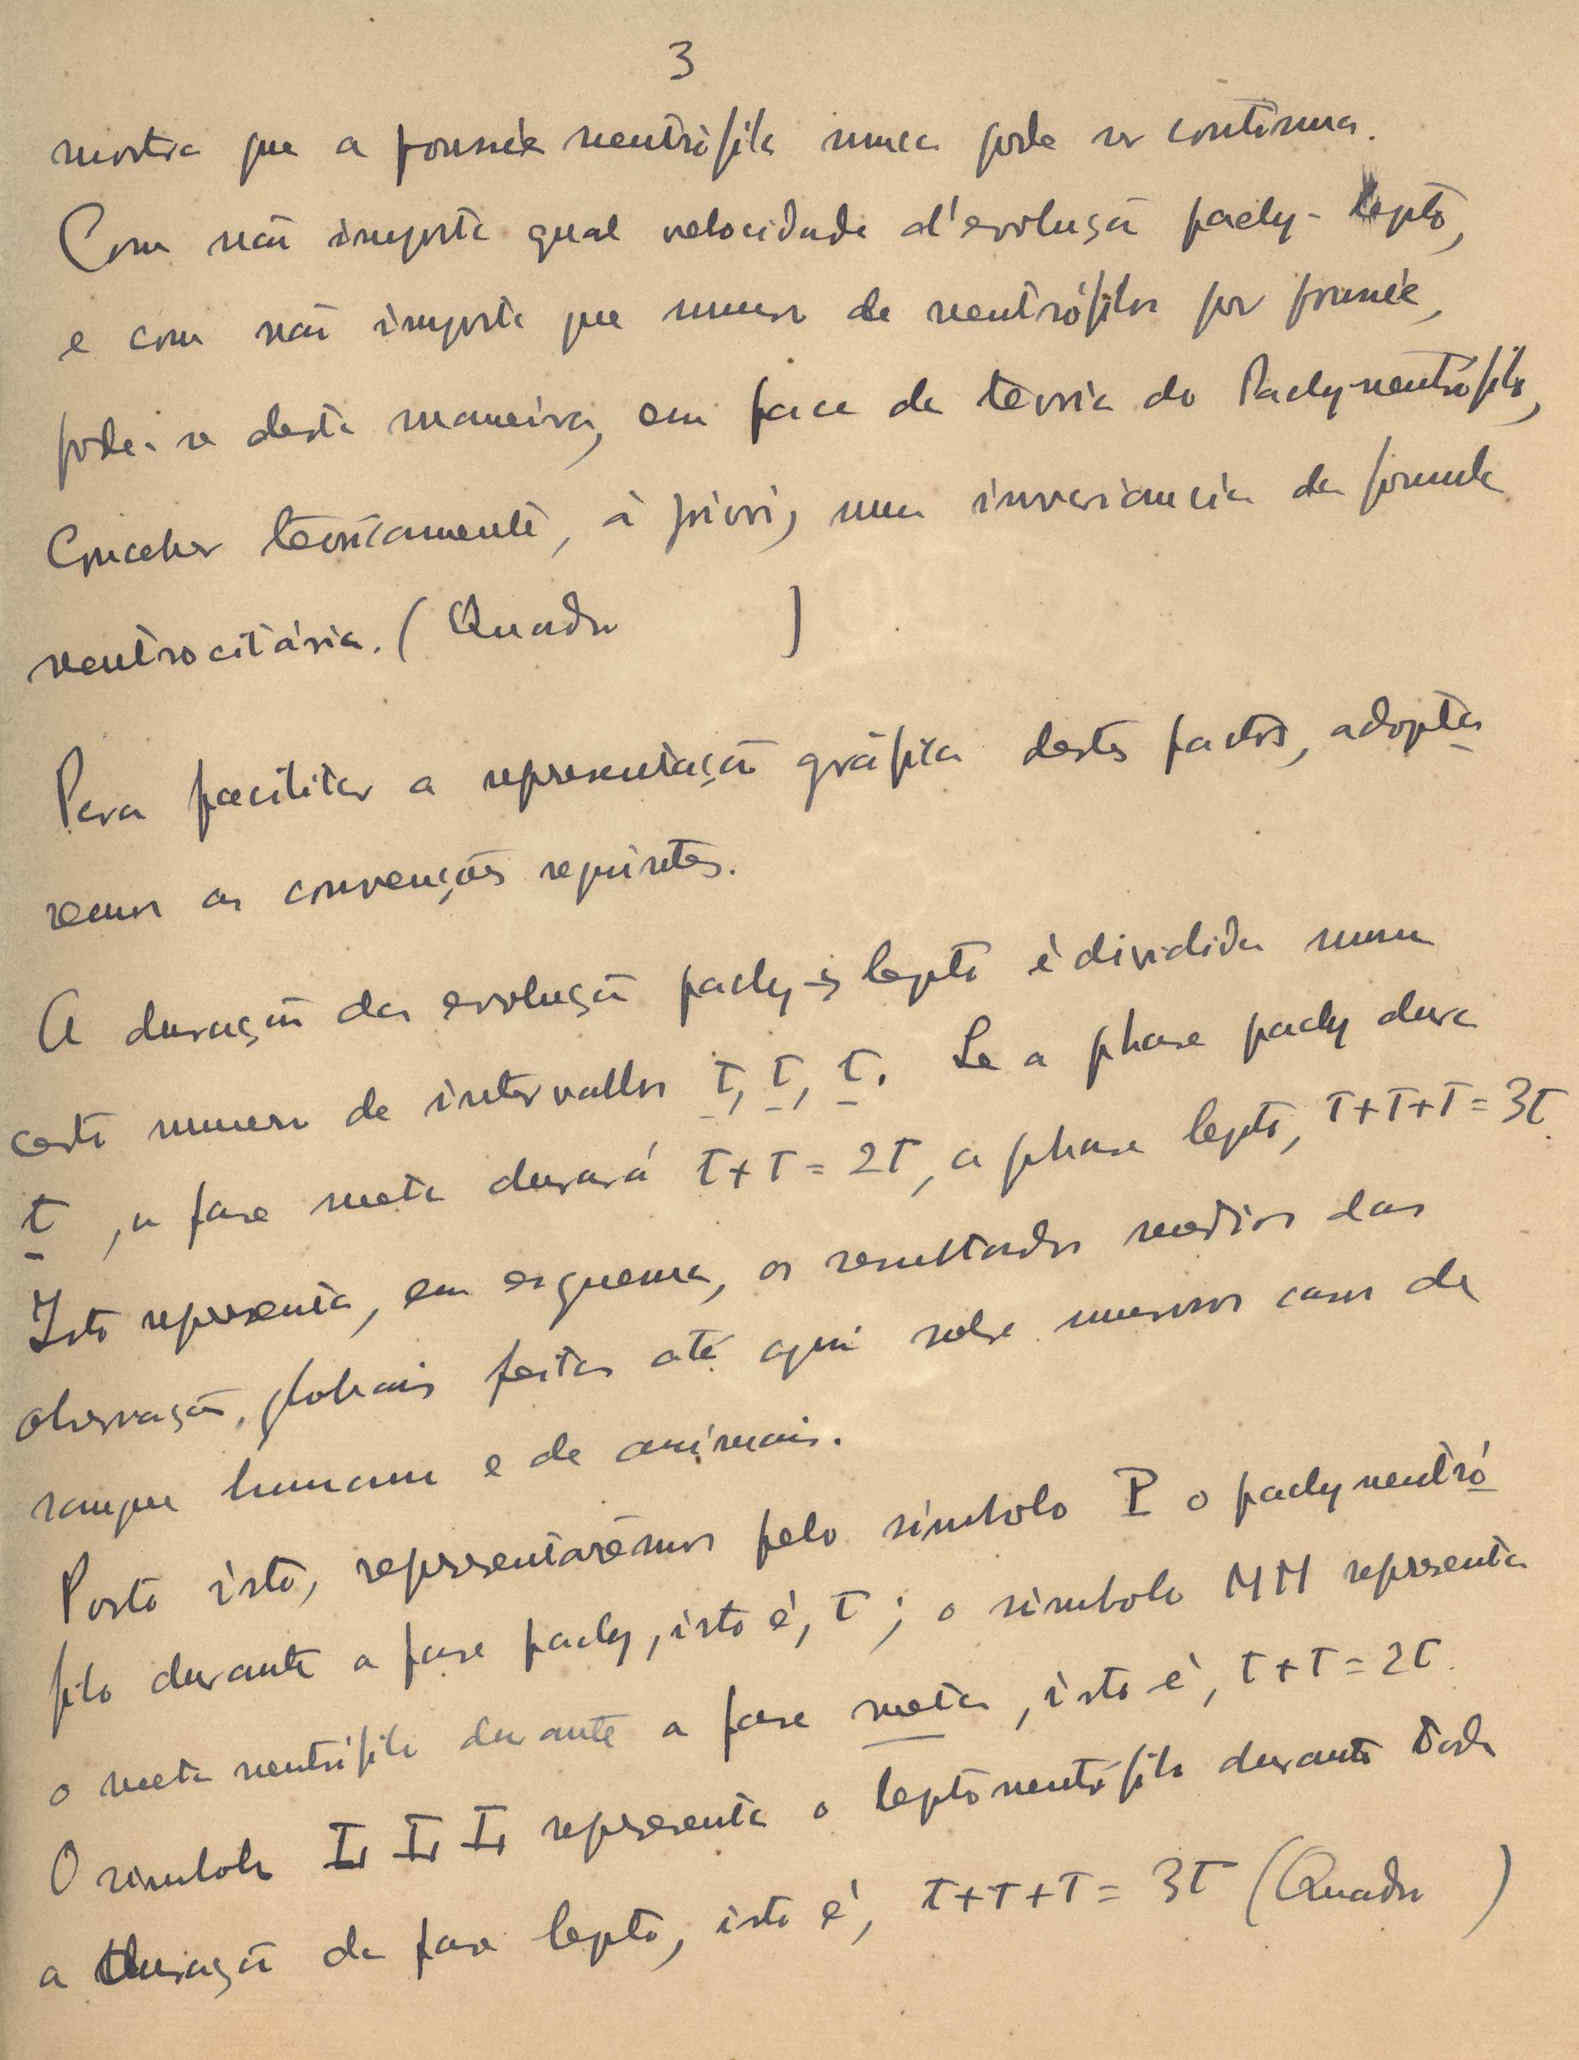 3
mostra que a poussée neutrófila nunca pode ser continua.
Com não importa qual velocidade d'evolução pachy-lepto,
e com não importa que numero de neutrófilos por poussée,
pode-se desta maneira, em face da teoria do Pachyneutrófilo,
conceber teoricamente, à priori, uma invariancia da formula
neutrocitária. (Quadro )
Para facilitar a representação gráfica destes factos, adopta
remos as convenções seguintes.
A duração da evolução pachy → lepto é dividida num
certo numero de intervallos t, t, t. Se a phase pachy dura
t, a fase meta durará t + t = 2t, a phase lepto, t+t+t = 3t.
Isto representa, em esquema, os resultados medios das
observação, globais feitas até aqui sobre numerosos casos de
sangue humano e de animais.
Posto isto, representarêmos pelo simbolo P o pachyneutró
filo durante a fase pachy, isto é, t; o simbolo MM representa
o meta neutrófilo durante a fase meta, isto é, t + t = 2t.
O simbolo L L L representa o leptoneutrófilo durante toda
a duração da fase lepto, isto é, t+t+t = 3t (Quadro )